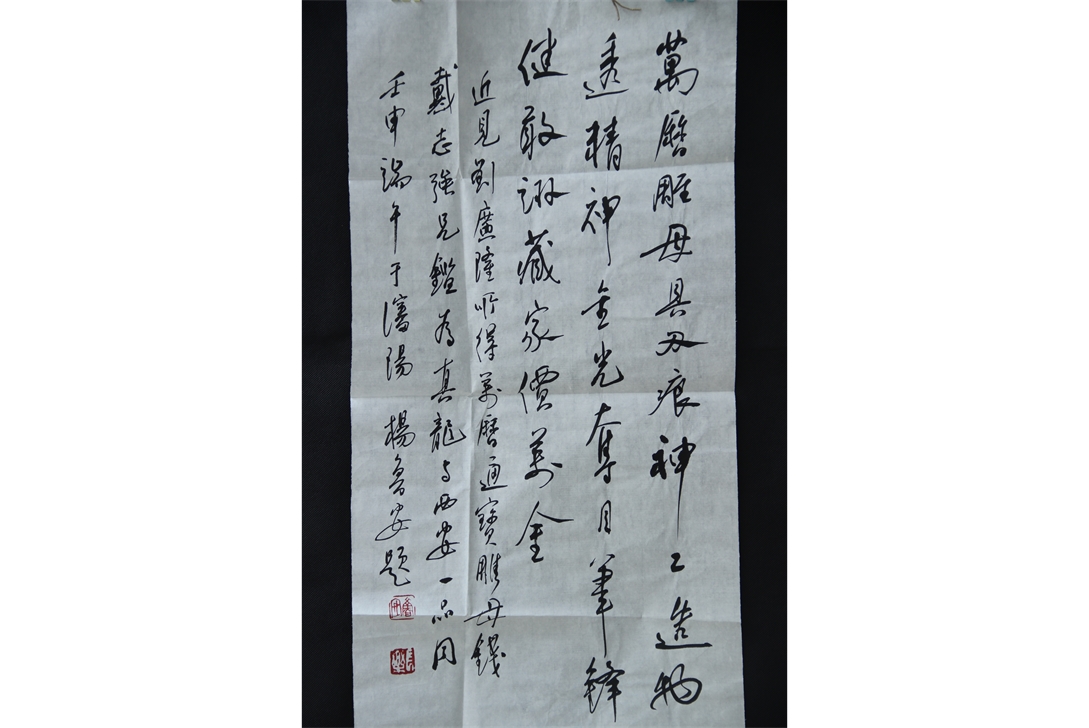 萬曆雕母具刃痕神工造物
透精神金光奪目筆鋒
健敢詡藏家價萬金
近見劉廉隆所得萬曆通寶雕母錢
戴志強兄鑑為真龍与西安一品同
壬申端午于瀋陽 楊魯安題